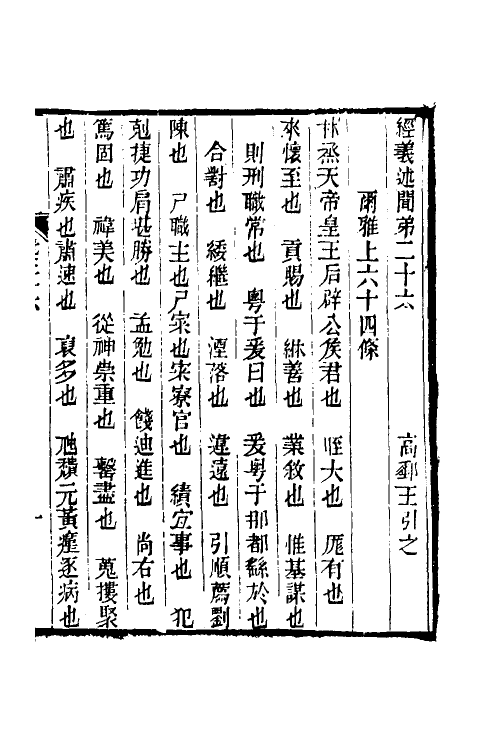 經義述聞弟二十六 高郵王引之
爾雅上六十四條
林烝天帝皇王后辟公侯君也 晊大也 厖有也
來懷至也 貢賜也 綝善也 業敘也 惟基謀也
則刑職常也 粵于爰曰也 爰粵于那都繇於也
合對也 緌繼也 湮落也 違遠也 引順薦劉
陳也 尸職主也尸寀也寀寮官也 績宜事也 犯
剋捷功肩堪勝也 孟勉也 餞迪進也 尚右也
篤固也 禕美也 從神崇重也 罄盡也 蒐摟聚
也 肅疾也肅速也 裒多也 虺穨元黃瘽逐病也